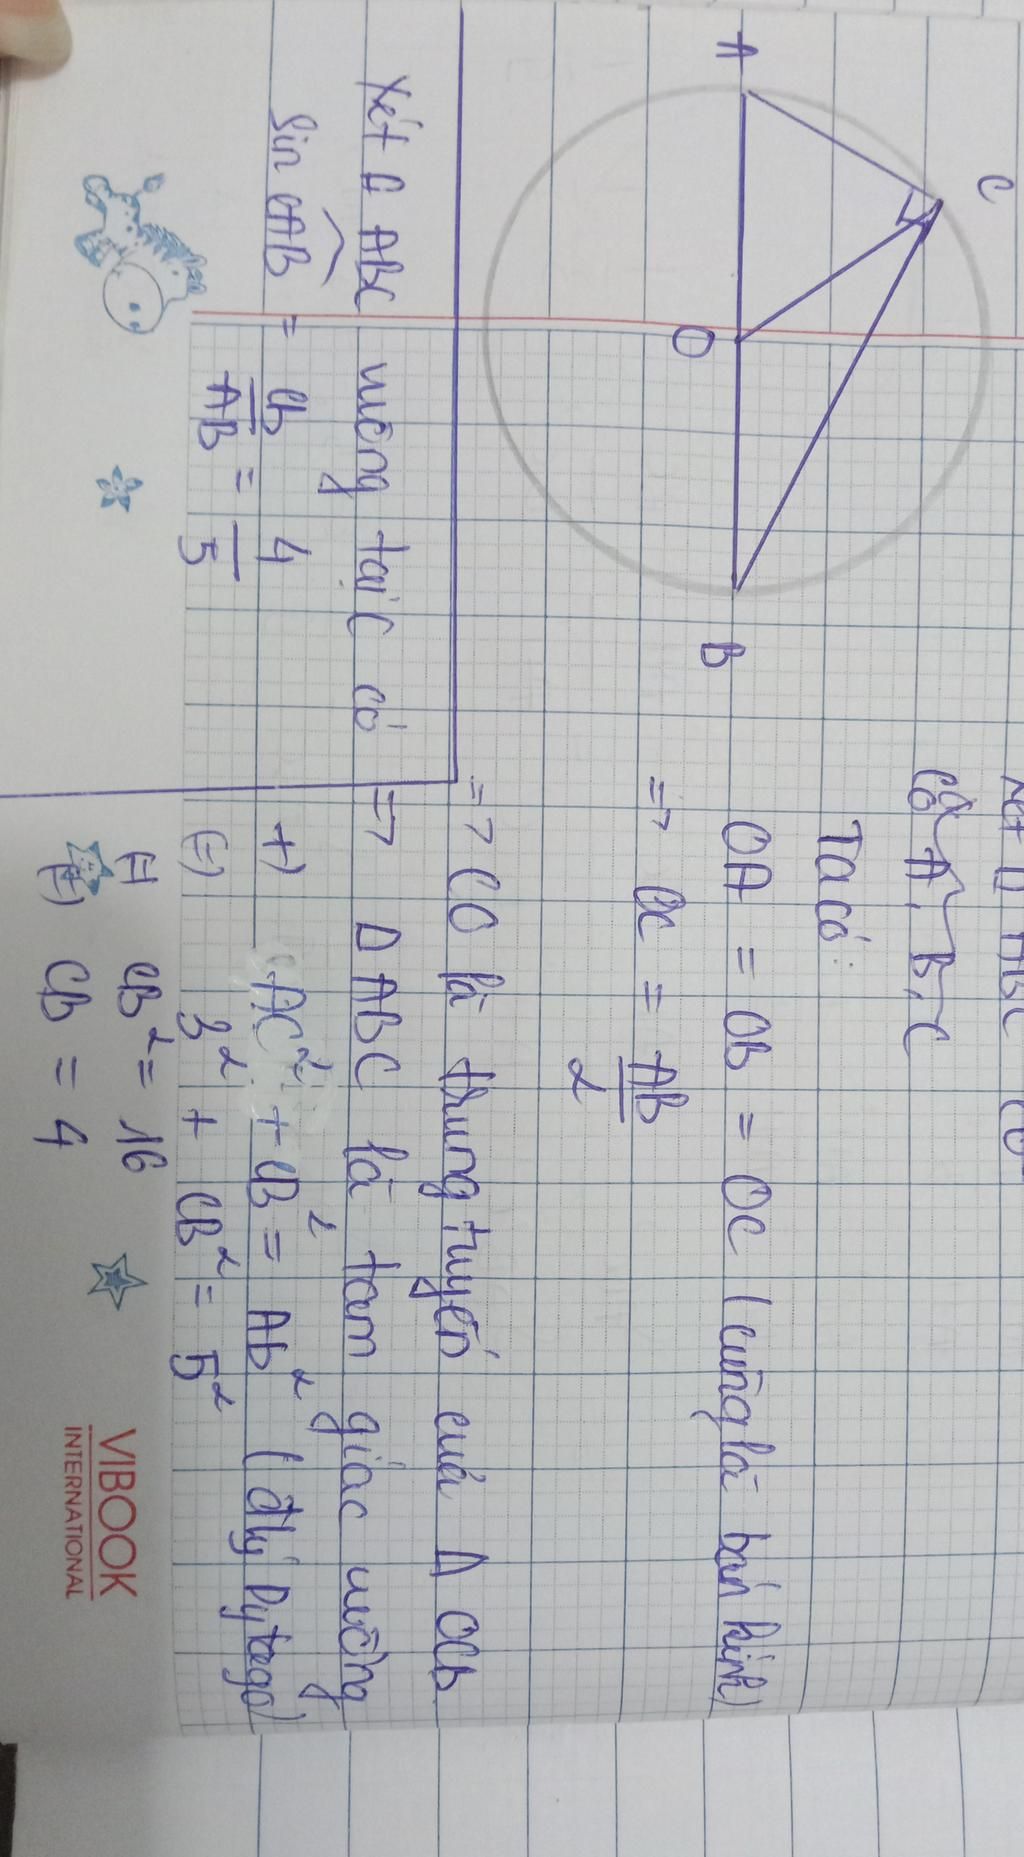 C
A
O
B
Xét Δ ABC
Có A, B, C
Ta có:
OA = OB = OC (cùng là bán kính)
=> OC = AB/2
=> CO là trung tuyến của Δ OCB
=> Δ ABC là tam giác vuông
+) AC² + CB² = AB² (đlý Pytago)
(=) 3² + CB² = 5²
(=) CB² = 16
(=) CB = 4
Xét Δ ABC vuông tại C có
sin CAB = CB/AB = 4/5
VIBOOK
INTERNATIONAL